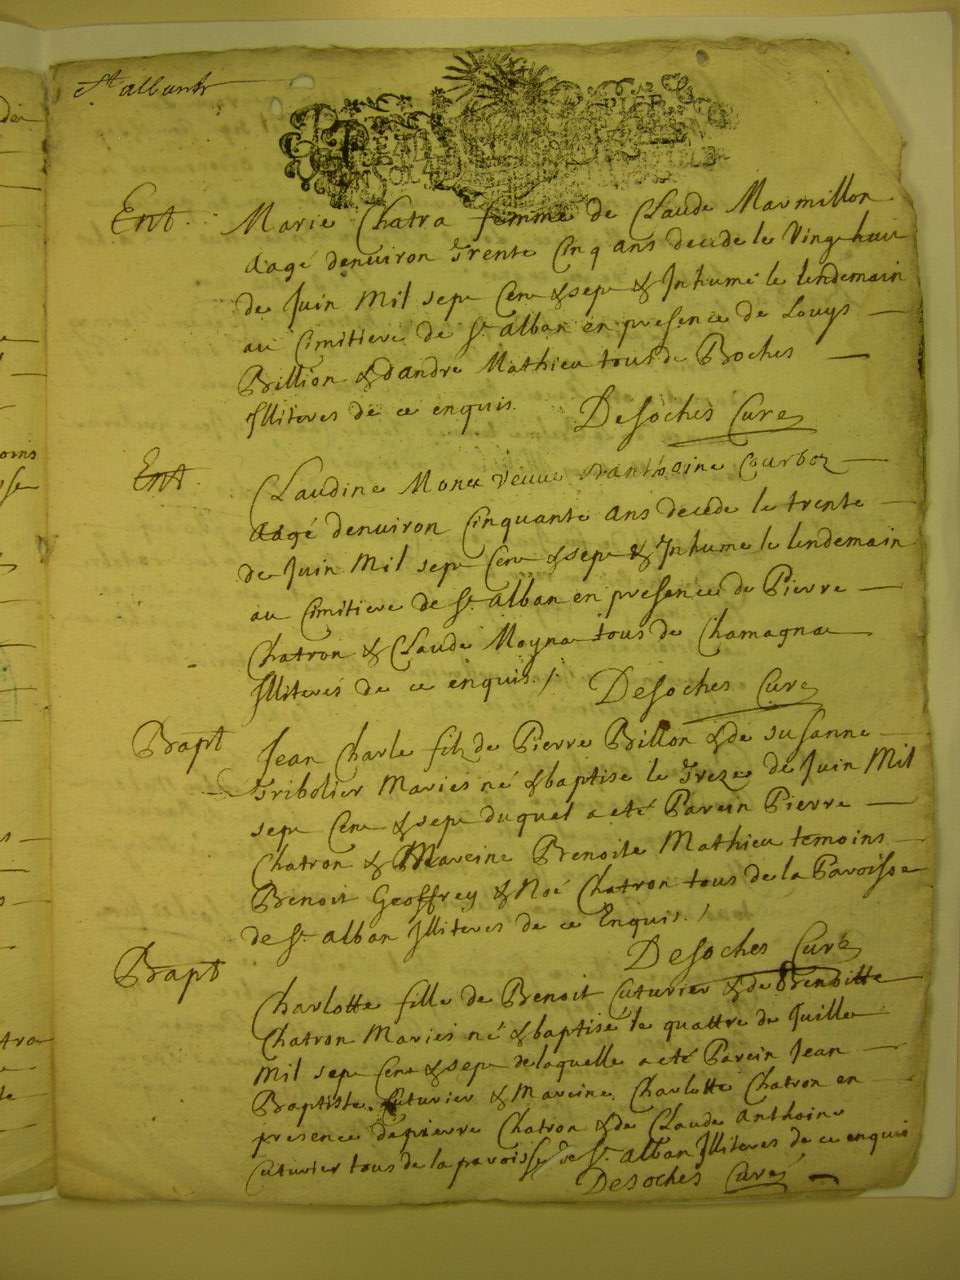 St alban
Ent. Marie Chatra femme de Claude Marmillon
aagé denuiron Trente Cinq ans decede le Vingt huit
de Juin Mil sept Cent & sept & Inhumé le lendemain
au Cimitiere de St alban en presence de Louys
Billion & dandre Mathieu tous de Boches
Illiteres de ce enquis. Desoches Cure
Ent Claudine Monet veuue danthoine Courboz
aagé denuiron Cinquante ans decede le trente
de Juin Mil sept Cent & sept & Inhume le lendemain
au Cimitiere de St alban en presence de Pierre
Chatron & Claude Moyna tous de Chamagna
Illiterés de ce enquis. / Desoches Cure
Bapt Jean Charle filz de Pierre Billon & de susanne
Tribolier Maries né & baptise le Treze de Juin Mil
sept Cent & sept duquel a eté Parein Pierre
Chatron & Mareine Benoite Mathieu temoins
Benoit Geoffrey & Noé Chatron tous de la Paroisse
de St alban Illiteres de ce Enquis. /
Desoches Curé
Bapt Charlotte fille de Benoit Cuturier & de Benoitte
Chatron Maries né & baptisé le quattre de Juillet
Mil sept Cent & sept de laquelle a eté Parein Jean
Baptiste Cuturier & Mareine Charlotte Chatron en
presence de pierre Chatron & de Claude anthoine
Cuturier tous de la paroisse de St alban Illiteres de ce enquis
Desoches Curé